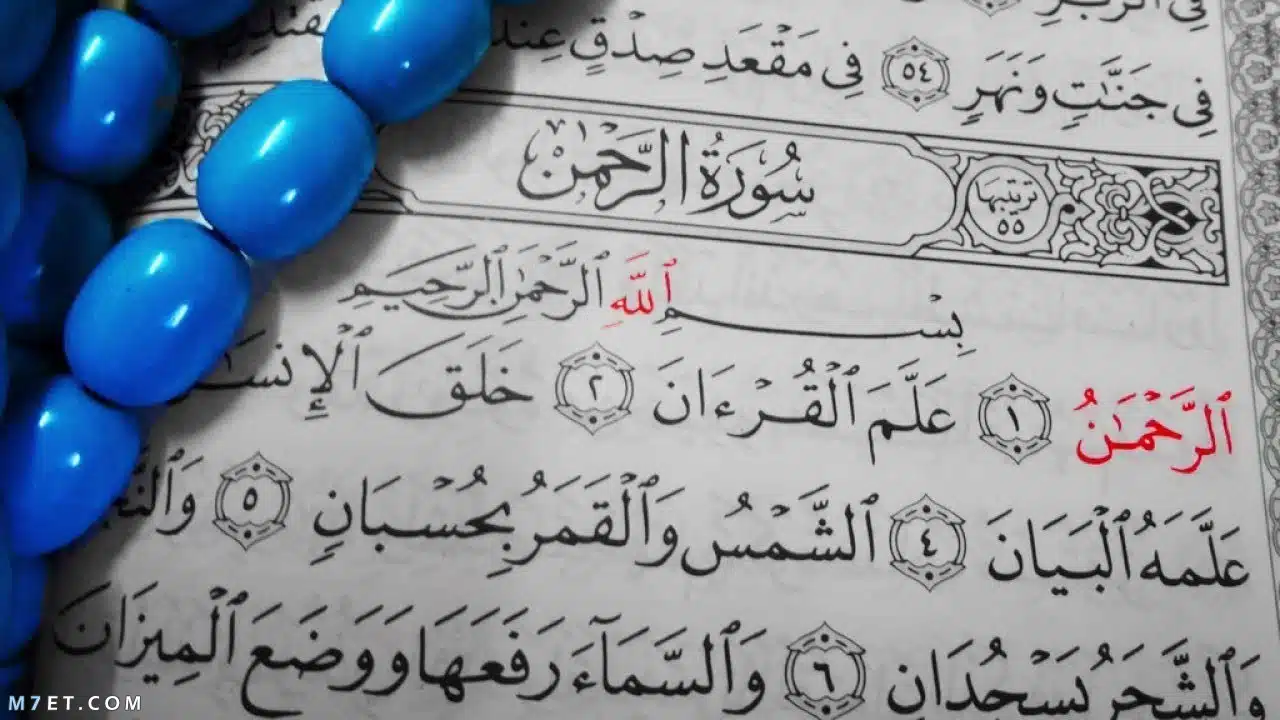 فِي جَنَّٰتٍ وَنَهَرٍ ٥٤ فِي مَقْعَدِ صِدْقٍ
سُورَةُ الرَّحْمٰن
ترتيبها ٥٥
بِسْمِ ٱللَّهِ ٱلرَّحْمَٰنِ ٱلرَّحِيمِ
ٱلرَّحْمَٰنُ ١ عَلَّمَ ٱلْقُرْءَانَ ٢ خَلَقَ
عَلَّمَهُ ٱلْبَيَانَ ٤ ٱلشَّمْسُ وَٱلْقَمَرُ بِحُسْبَانٍ ٥
وَٱلشَّجَرُ يَسْجُدَانِ ٦ وَٱلسَّمَآءَ رَفَعَهَا وَوَضَعَ ٱلْمِيزَانَ
M7ET.COM